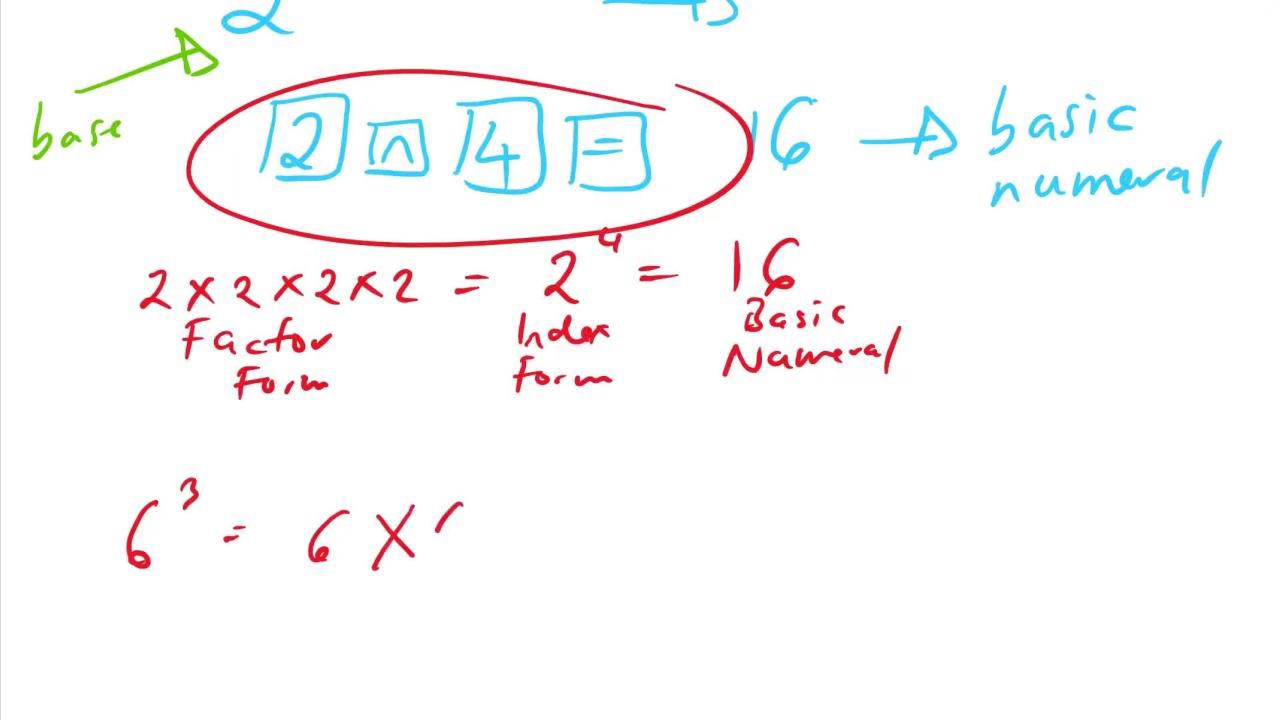 2
base
2 ^ 4 = 16 → basic
numeral
2 × 2 × 2 × 2 = 2⁴ = 16
Factor Form
Index Form
Basic Numeral
6³ = 6 ×